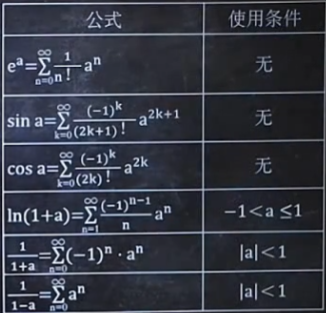 公式 使用条件
e^a=∑_{n=0}^{∞} 1/n! a^n 无
sin a=∑_{k=0}^{∞} (-1)^k/(2k+1)! a^{2k+1} 无
cos a=∑_{k=0}^{∞} (-1)^k/(2k)! a^{2k} 无
ln(1+a)=∑_{n=1}^{∞} (-1)^{n-1}/n a^n -1<a≤1
1/1+a=∑_{n=0}^{∞}(-1)^n·a^n |a|<1
1/1-a=∑_{n=0}^{∞}a^n |a|<1